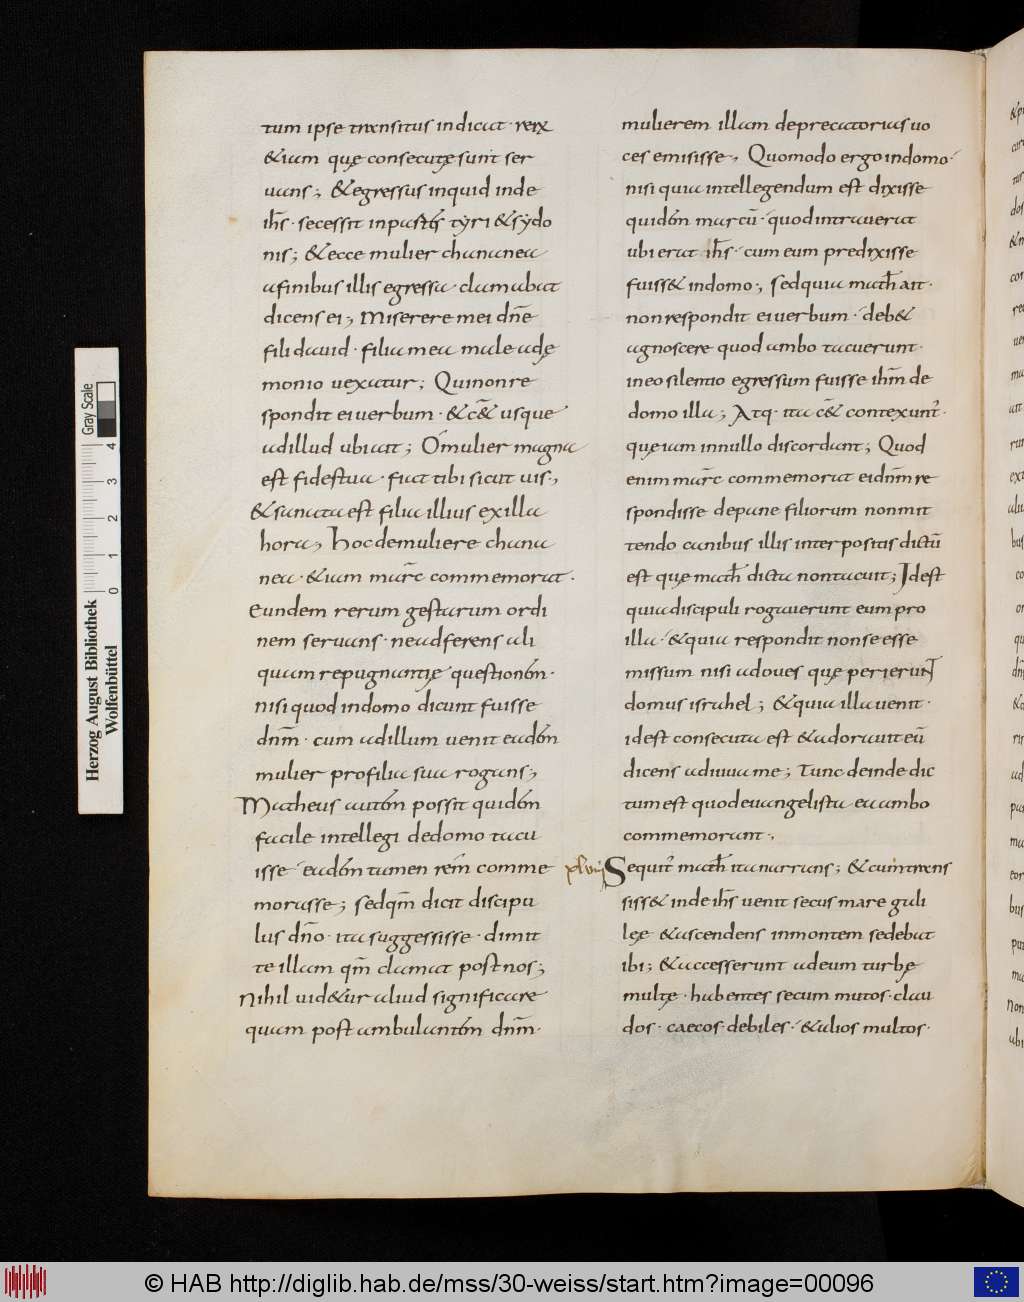 tum ipse transitus indicat· rerū
&iam quę consecutę sunt ser
uans; &egressus inquid inde
ih̅s· secessit inpartes tyri &sydo
nis; &ecce mulier chananea
afinibus illis egressa· clamabat
dicens ei; Miserere mei dn̅e
fili dauid· filia mea male adę
monio uexatur; Quinonre
spondit eiuerbum· &c& usque
adillud ubiait; O mulier magna
est fidestua· fiat tibi sicut uis;
&sanata est filia illius exilla
hora; Hocdemuliere chana
nea· &iam marc̅ commemorat·
Eundem rerum gestarum ordi
nem seruans· neadferens ali
quam repugnantię questionem·
nisi quod indomo dicunt fuisse
dn̅m· cum adillum uenit eadem
mulier profilia sua rogans;
Matheus autem possit quidem
facile intellegi dedomo tacu
isse eadem tamen rem̅ comme
morasse; sedqm̅ dicit discipu
lus dn̅o· ita suggessisse· dimit
te illam qm̅ clamat post nos;
Nihil uid&ur aliud significare
quam post ambulantem dn̅m·
mulierem illam deprecatorias uo
ces emisisse; Quomodo ergo indomo·
nisi quia intellegendum est dixisse
quidem marcū· quodintrauerat
ubi erat ih̅s· cum eum predixisse
fuiss& indomo; sedquia math̅ ait·
nonrespondit eiuerbum· deb&
agnoscere quod ambo tacuerunt·
ineo silentio egressum fuisse ihm̅ de
domo illa; Atq· ita c&̅ contexunt̅·
quęiam innullo discordant; Quod
enim marc̅ commemorat eidn̅m re
spondisse depane filiorum nonmit
tendo canibus illis interpositis dictū
est quę math̅ dicta nontacuit; Idest
quiadiscipuli rogauerunt eum pro
illa· &quia respondit nonse esse
missum nisi adoues quę perierunt
domus israhel; &quia illa uenit·
idest consecuta est &adorauit eū
dicens adiuua me; Tunc deinde dic
tum est quodeuangelista ea ambo
commemorant·
xlviiij Sequit̅ math̅ ita narrans; &cum trans
siss& inde ih̅s uenit secus mare gali
leę &ascendens inmontem sedebat
ibi; &accesserunt adeum turbę
multę· habentes secum mutos· clau
dos· caecos· debiles· &alios multos·
Gray Scale
0 1 2 3 4
Herzog August Bibliothek
Wolfenbüttel
© HAB http://diglib.hab.de/mss/30-weiss/start.htm?image=00096